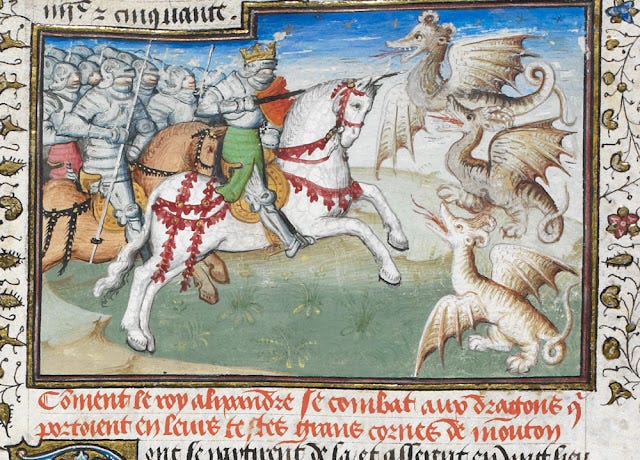 iiijˢ ⁊ cinquante.
Cōment le roy alixandre se combat aux dragons q̄
portoient en leurs testes grans cornes de mouton
ont se partirent de la et allerent en